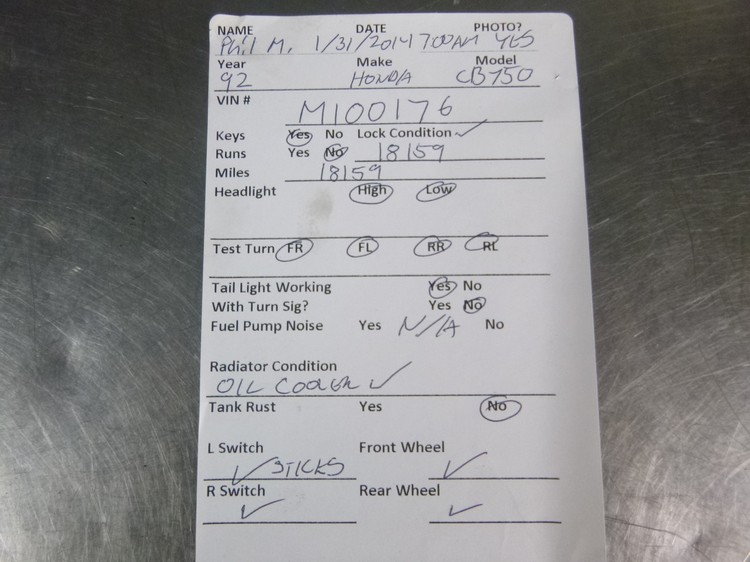 NAME DATE PHOTO?
Phil M. 1/31/2014 7:00AM YES
Year Make Model
92 HONDA CB750
VIN #
M100176
Keys Yes No Lock Condition ✓
Runs Yes No 18159
Miles 18159
Headlight High Low
Test Turn FR FL RR RL
Tail Light Working Yes No
With Turn Sig? Yes No
Fuel Pump Noise Yes N/A No
Radiator Condition
OIL COOLER ✓
Tank Rust Yes No
L Switch Front Wheel
✓ STICKS ✓
R Switch Rear Wheel
✓ ✓